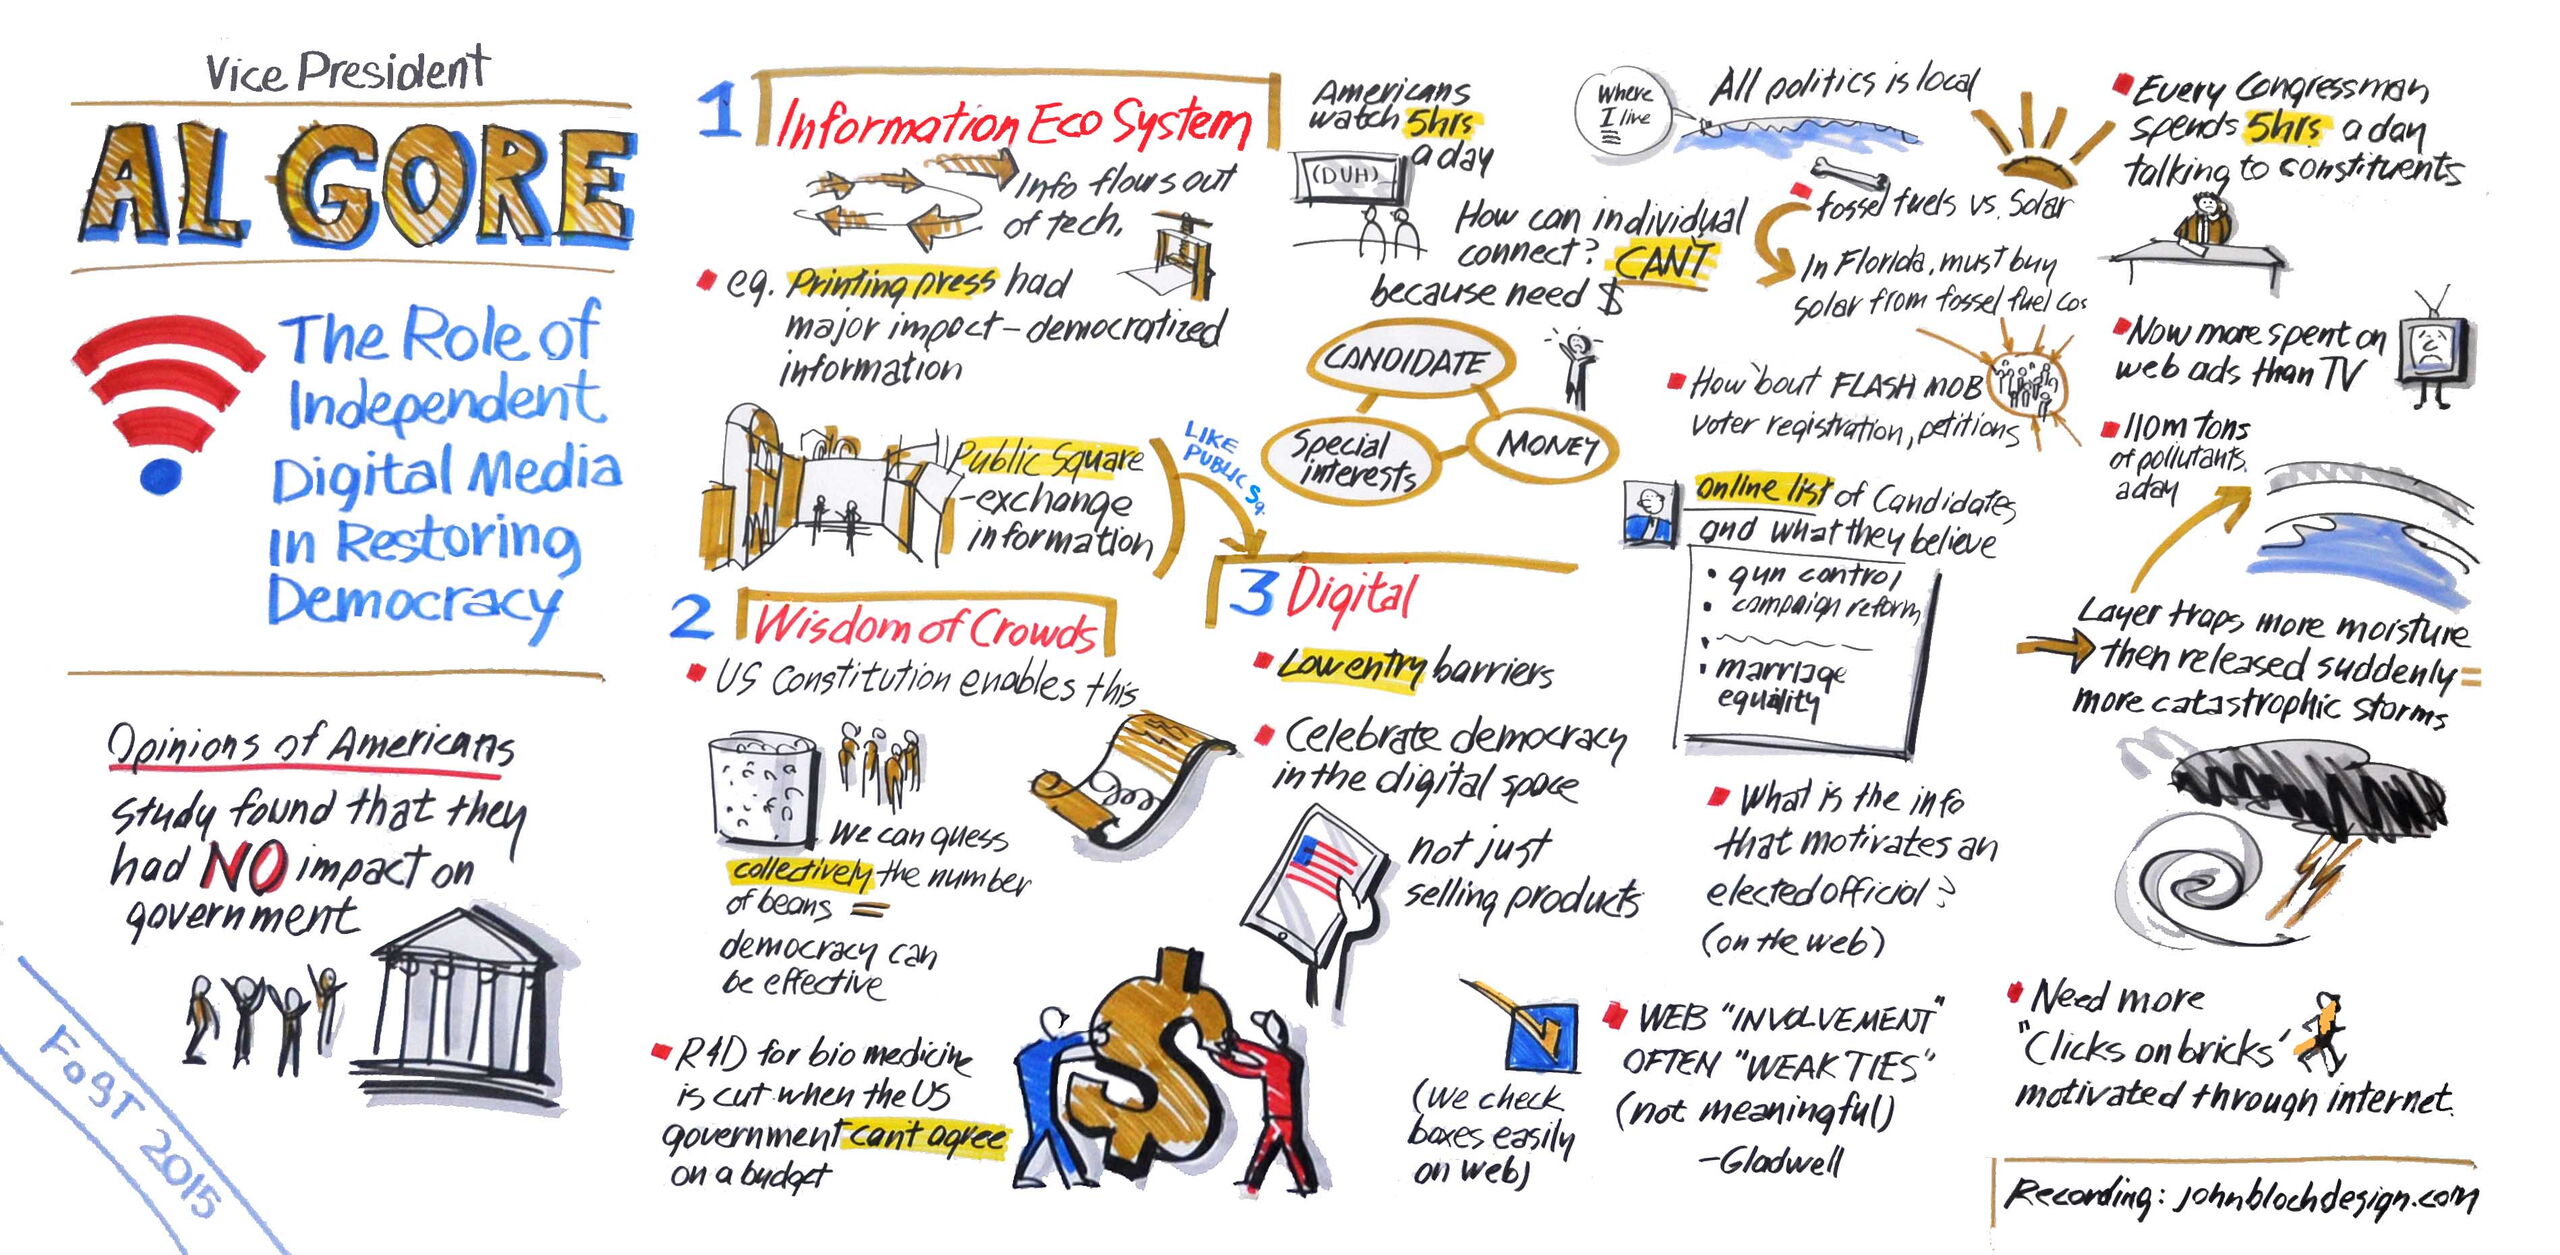 Vice President
AL GORE
The Role of
Independent
Digital Media
in Restoring
Democracy
Opinions of Americans
study found that they
had NO impact on
government
FoST 2015
1 Information Eco System
Info flows out
of tech,
eg. Printing press had
major impact – democratized
information
Public Square
- exchange
information
LIKE
PUBLIC Sq.
2 Wisdom of Crowds
US Constitution enables this
We can guess
collectively the number
of beans =
democracy can
be effective
R&D for bio medicine
is cut when the US
government can't agree
on a budget
Americans
watch 5hrs
a day
(DUH)
How can individual
connect? CAN'T
because need $
CANDIDATE
Special
interests
MONEY
3 Digital
Low entry barriers
Celebrate democracy
in the digital space
not just
selling products
$
(we check
boxes easily
on web)
WEB "INVOLVEMENT"
OFTEN "WEAK TIES"
(not meaningful)
- Gladwell
Where
I live
All politics is local
fossel fuels vs. Solar
In Florida, must buy
solar from fossel fuel cos
How 'bout FLASH MOB
voter registration, petitions
online list of Candidates
and what they believe
• gun control
• campaign reform
•
• marriage
equality
What is the info
that motivates an
elected official?
(on the web)
Every Congressman
spends 5hrs a day
talking to constituents
Now more spent on
web ads than TV
110m tons
of pollutants
a day
Layer traps more moisture
then released suddenly =
more catastrophic storms
Need more
"Clicks on bricks'
motivated through internet.
Recording: johnblochdesign.com